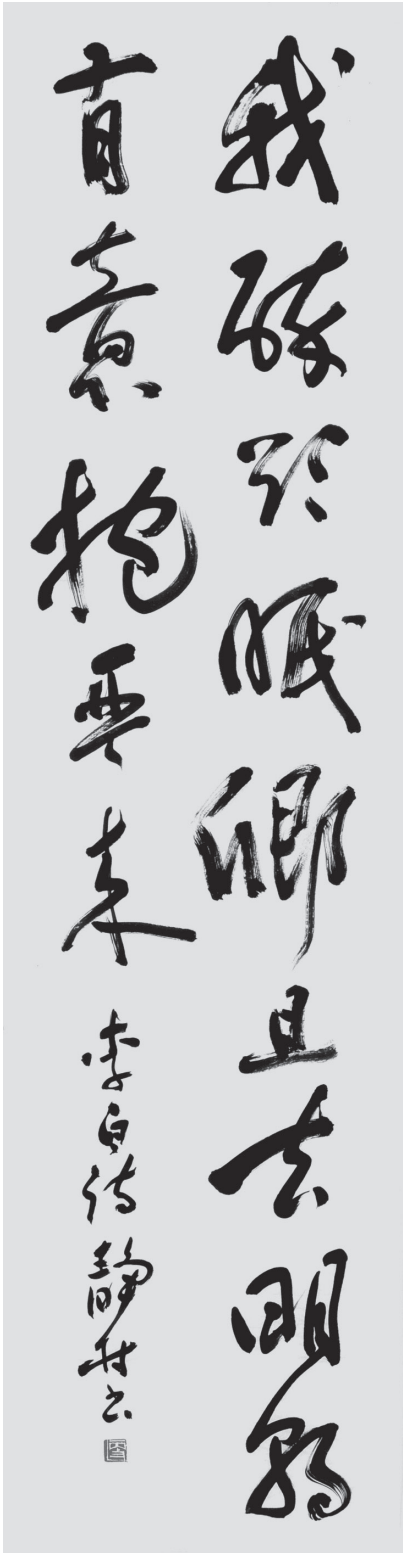 我醉欲眠卿且去明朝
有意抱琴来
李白诗静村书